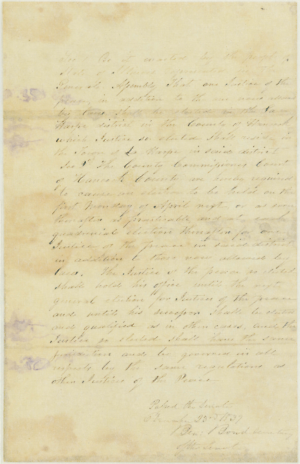 Sec 1 Be it enacted by the
State of
General Assembly That one Justice of the
Peace in addition to the now allowed
by Law, shall be elected in the La
Harpe district in the County of Hancock
which Justice so elected shall reside in
the Town of La Harpe in said district
Sec 2 The County Commissioners Court
of Hancock County are hereby required
to cause an election to be held on the
first Monday of April next or as soon
thereafter as practicable and at each
quadrennial election thereafter for one
Justice of the peace in said district
in addition to those now allowed by
Law. The Justice of the peace so elected
shall hold his office until the next
general election for Justices of the peace
and until his successor shall be elected
and qualified as in other cases, and the
Justice so elected shall have the same
jurisdiction and be governed in all
respects by the same regulations as
other Justices of the Peace
Passed the Senate
22nd 1837